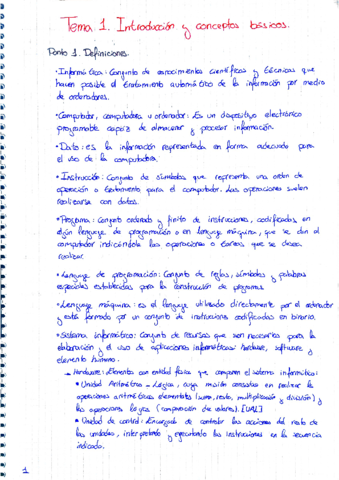 Tema 1. Introducción y conceptos básicos.
Punto 1. Definiciones.
• Informática: Conjunto de conocimientos científicos y técnicas que
hacen posible el tratamiento automático de la información por medio
de ordenadores.
• Computador, computadora u ordenador: Es un dispositivo electrónico
programable capaz de almacenar y procesar información.
• Dato: es la información representada en forma adecuada para
el uso de la computadora.
• Instrucción: Conjunto de símbolos que representa una orden de
operación o tratamiento para el computador. Las operaciones suelen
realizarse con datos.
• Programa: Conjunto ordenado y finito de instrucciones, codificadas, en
algún lenguaje de programación o en lenguaje máquina, que se dan al
computador indicándole las operaciones o tareas que se desea
realizar.
• Lenguaje de programación: Conjunto de reglas, símbolos y palabras
especiales establecidas para la construcción de programas.
• Lenguaje máquina: es el lenguaje utilizado directamente por el ordenador
y está formado por un conjunto de instrucciones codificadas en binario.
• Sistema informático: Conjunto de recursos que son necesarios para la
elaboración y el uso de aplicaciones informáticas: hardware, software y
elemento humano.
→ Hardware: Elementos con entidad física que componen el sistema informático:
• Unidad Aritmético-Lógica, cuya misión consiste en realizar las
operaciones aritméticas elementales (suma, resta, multiplicación y división) y
las operaciones lógica (comparación de valores). [UAL]
• Unidad de control: Encargada de controlar las acciones del resto de
las unidades, interpretando y ejecutando las instrucciones en la secuencia
indicada.
1